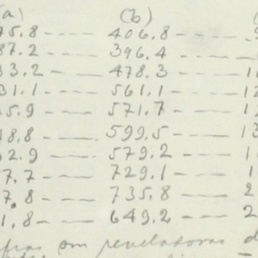 (a) (b)
5.8 ---- 406.8 ----
87.2 ---- 396.4 ----
33.2 ---- 478.3 ---- 1
31.1 ---- 561.1 ---- 12
5.9 ---- 571.7 ---- 12
8.8 ---- 599.5 ---- 13
2.9 ---- 579.2 ---- 1
7.7 ---- 729.1 ---- 1
7.8 ---- 735.8 ---- 2
1.8 ---- 649.2 ---- 2
fras son reveladoras d